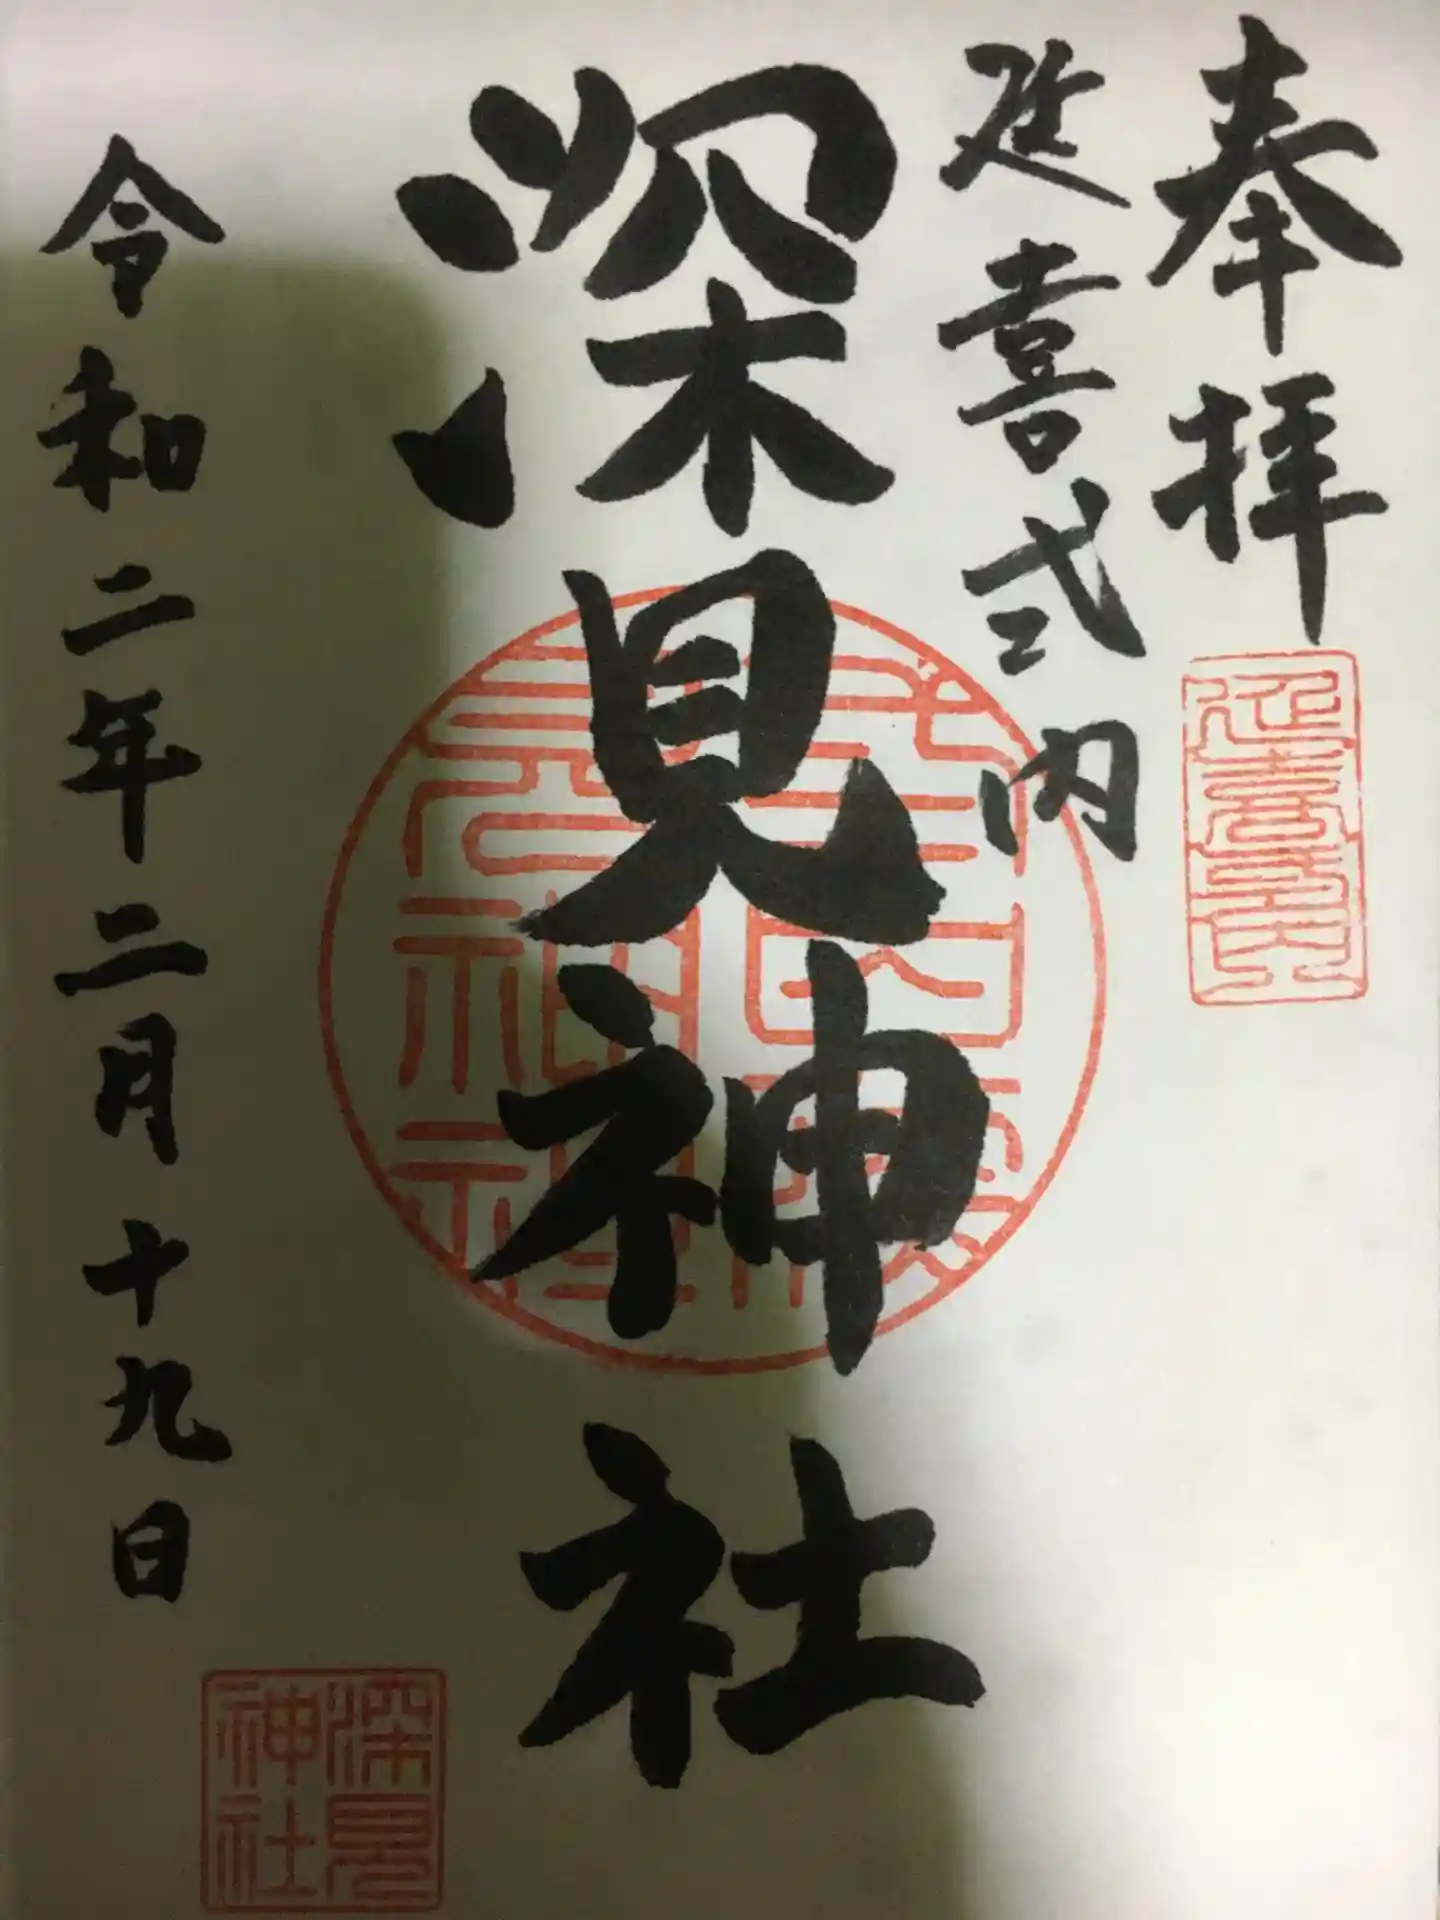 奉拝
延喜式内
深見神社
令和二年二月十九日
延喜式内
深見
神社